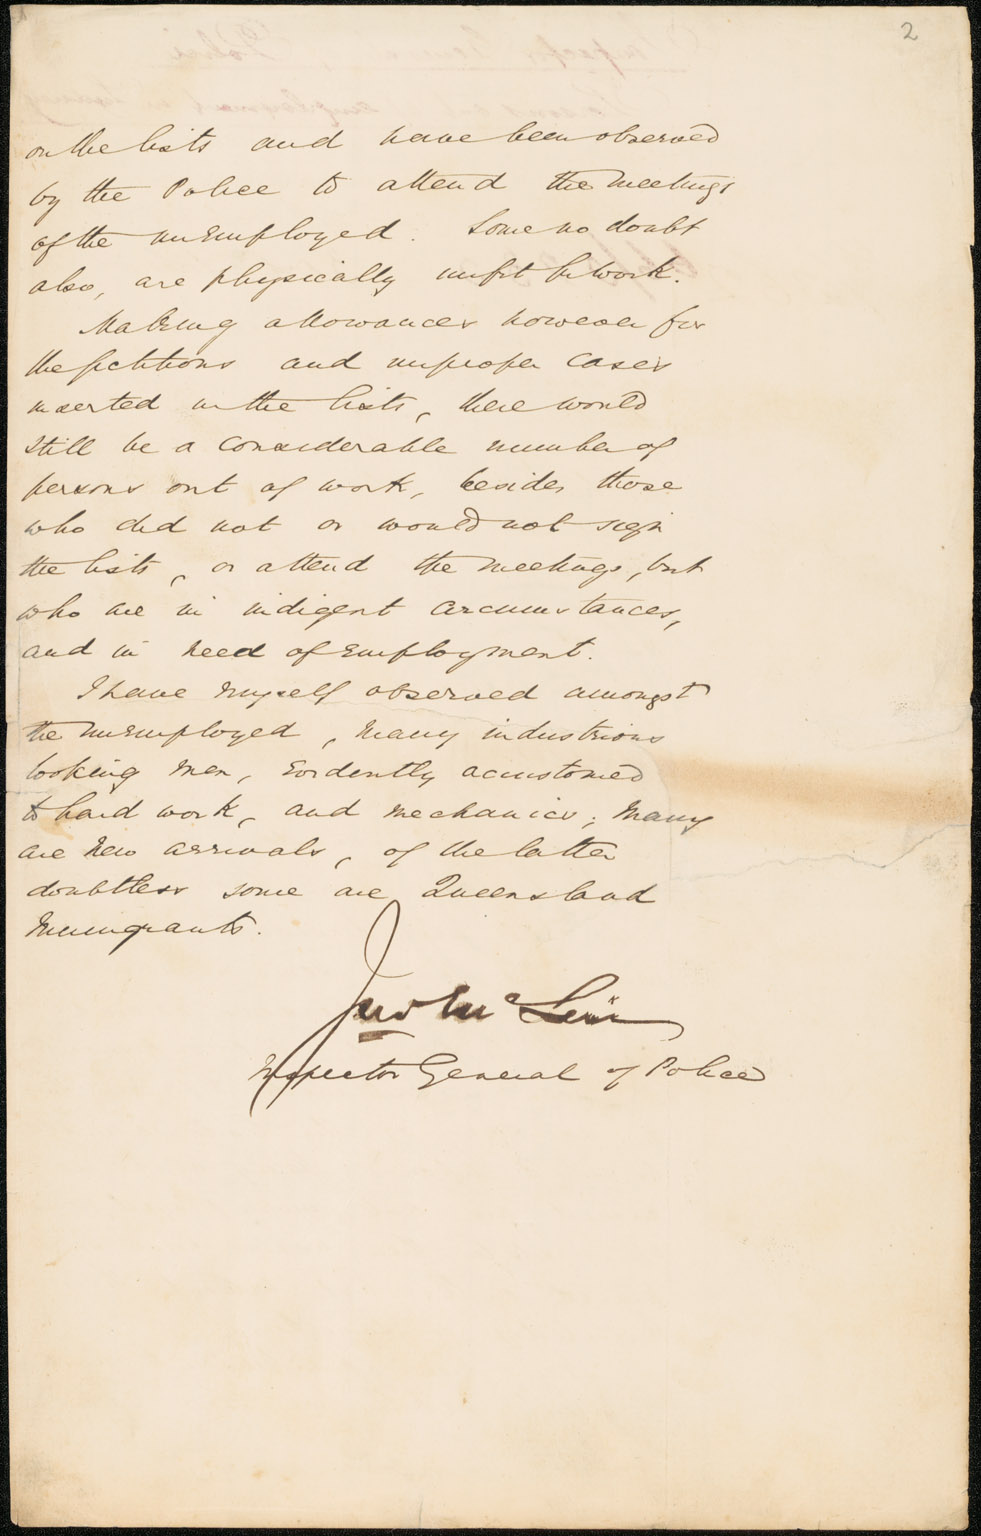 2
on the lists and have been observed
by the Police to attend the meetings
of the unemployed. Some no doubt
also, are physically unfit for work.
Making allowances however for
the fictitious and improper cases
inserted in the lists, there would
still be a considerable number of
persons out of work, besides those
who did not or would not sign
the lists, or attend the meetings, but
who are in indigent circumstances,
and in need of employment.
I have myself observed amongst
the unemployed, many industrious
looking men, evidently accustomed
to hard work, and mechanics; many
are new arrivals, of the latter
doubtless some are Queensland
Immigrants.
Jno McLerie
Inspector General of Police